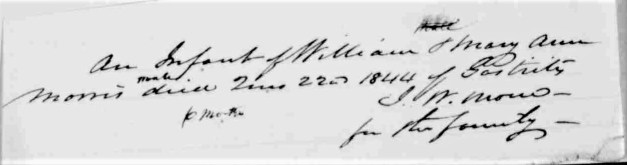 An Infant of William & Mary Ann
Morris male died 22d 1844 of Gastritis
6 Mo
J. W.
for the family